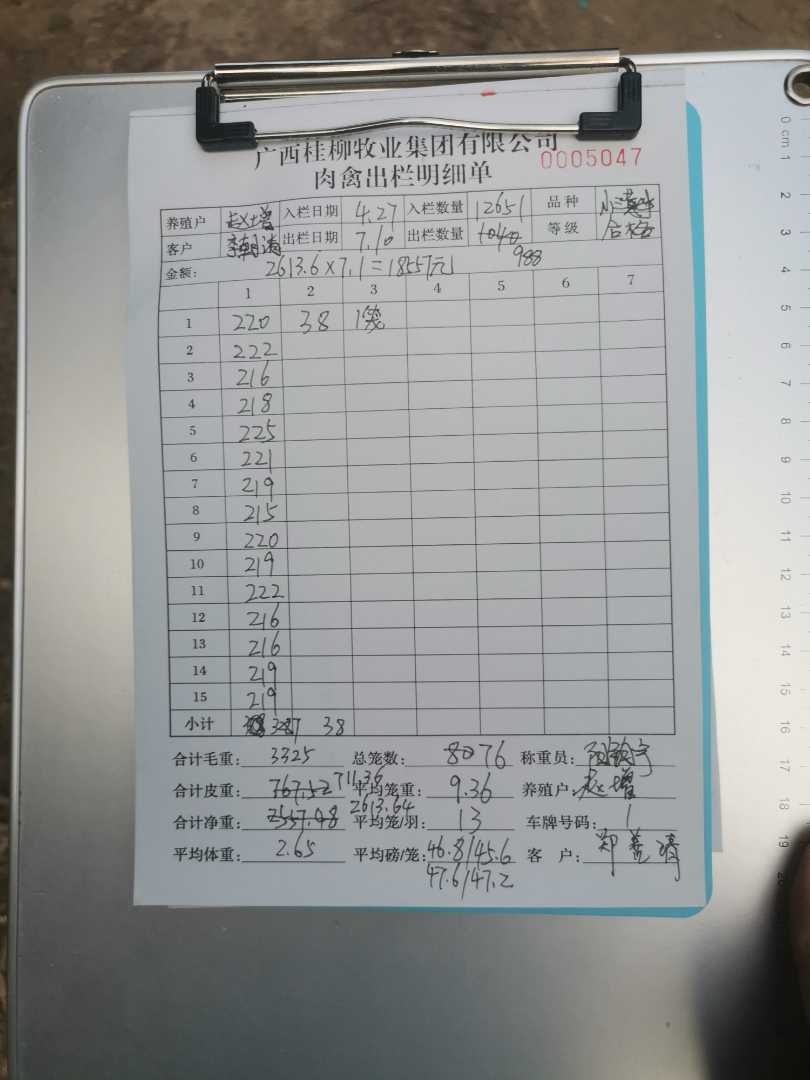 广西桂柳牧业集团有限公司
0005047
肉禽出栏明细单
养殖户 赵增 入栏日期 4.27 入栏数量 12651 品种
客户 出栏日期 7.10 出栏数量 1040 988 等级 合格
金额: 2613.6×7.1=18557元
1 2 3 4 5 6 7
1 220 38 1笼
2 222
3 216
4 218
5 225
6 221
7 219
8 215
9 220
10 219
11 222
12 216
13 216
14 219
15 219
小计 3287 38
合计毛重: 3325 总笼数: 80 76 称重员:
合计皮重: 767.52 711.36 平均笼重: 9.36 养殖户: 赵增
合计净重: 2557.48 2613.64 平均笼/羽: 13 车牌号码: 1
平均体重: 2.65 平均磅/笼: 46.8/45.6 客 户:
47.6/47.2
0 cm 1 2 3 4 5 6 7 8 9 10 11 12 13 14 15 16 17 18 19